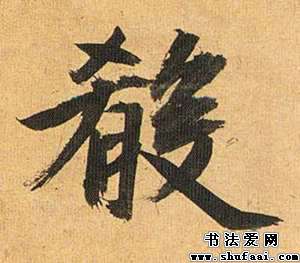 殽
书法爱网
www.shufaai.com